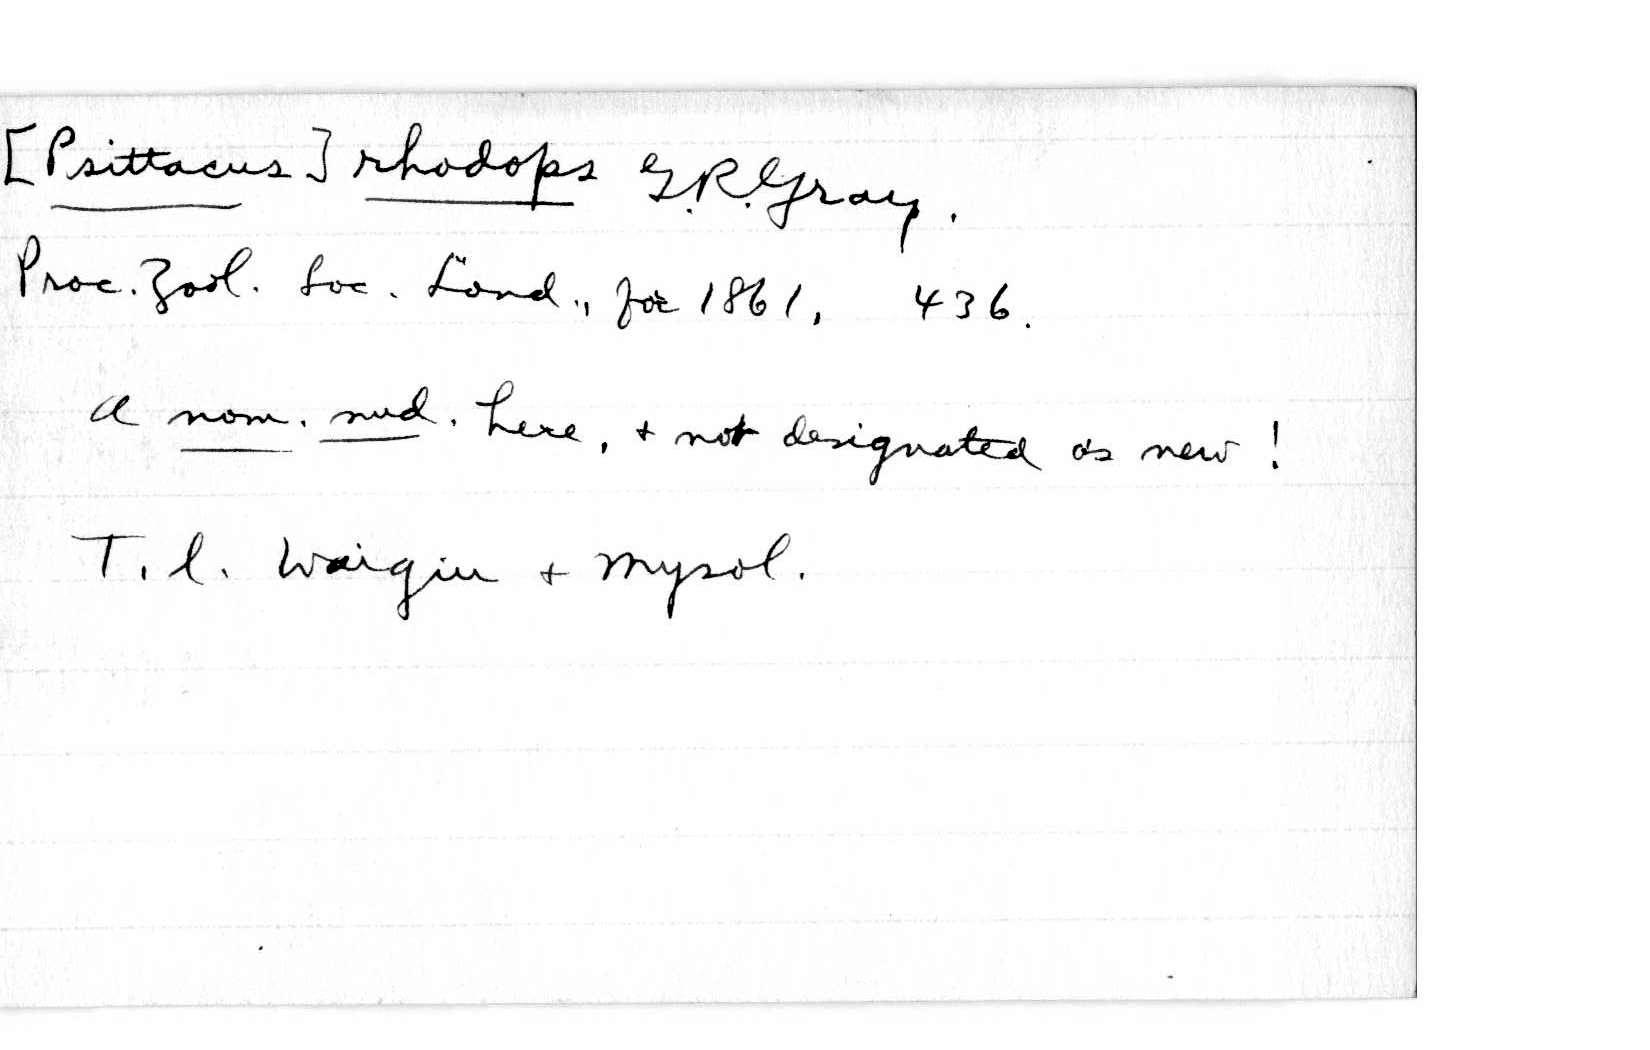 [Psittacus] rhodops G.R.Gray.
Proc. Zool. Soc. Lond., for 1861, 436.
a nom. nud. here, + not designated as new!
T. l. Waigiu + Mysol.